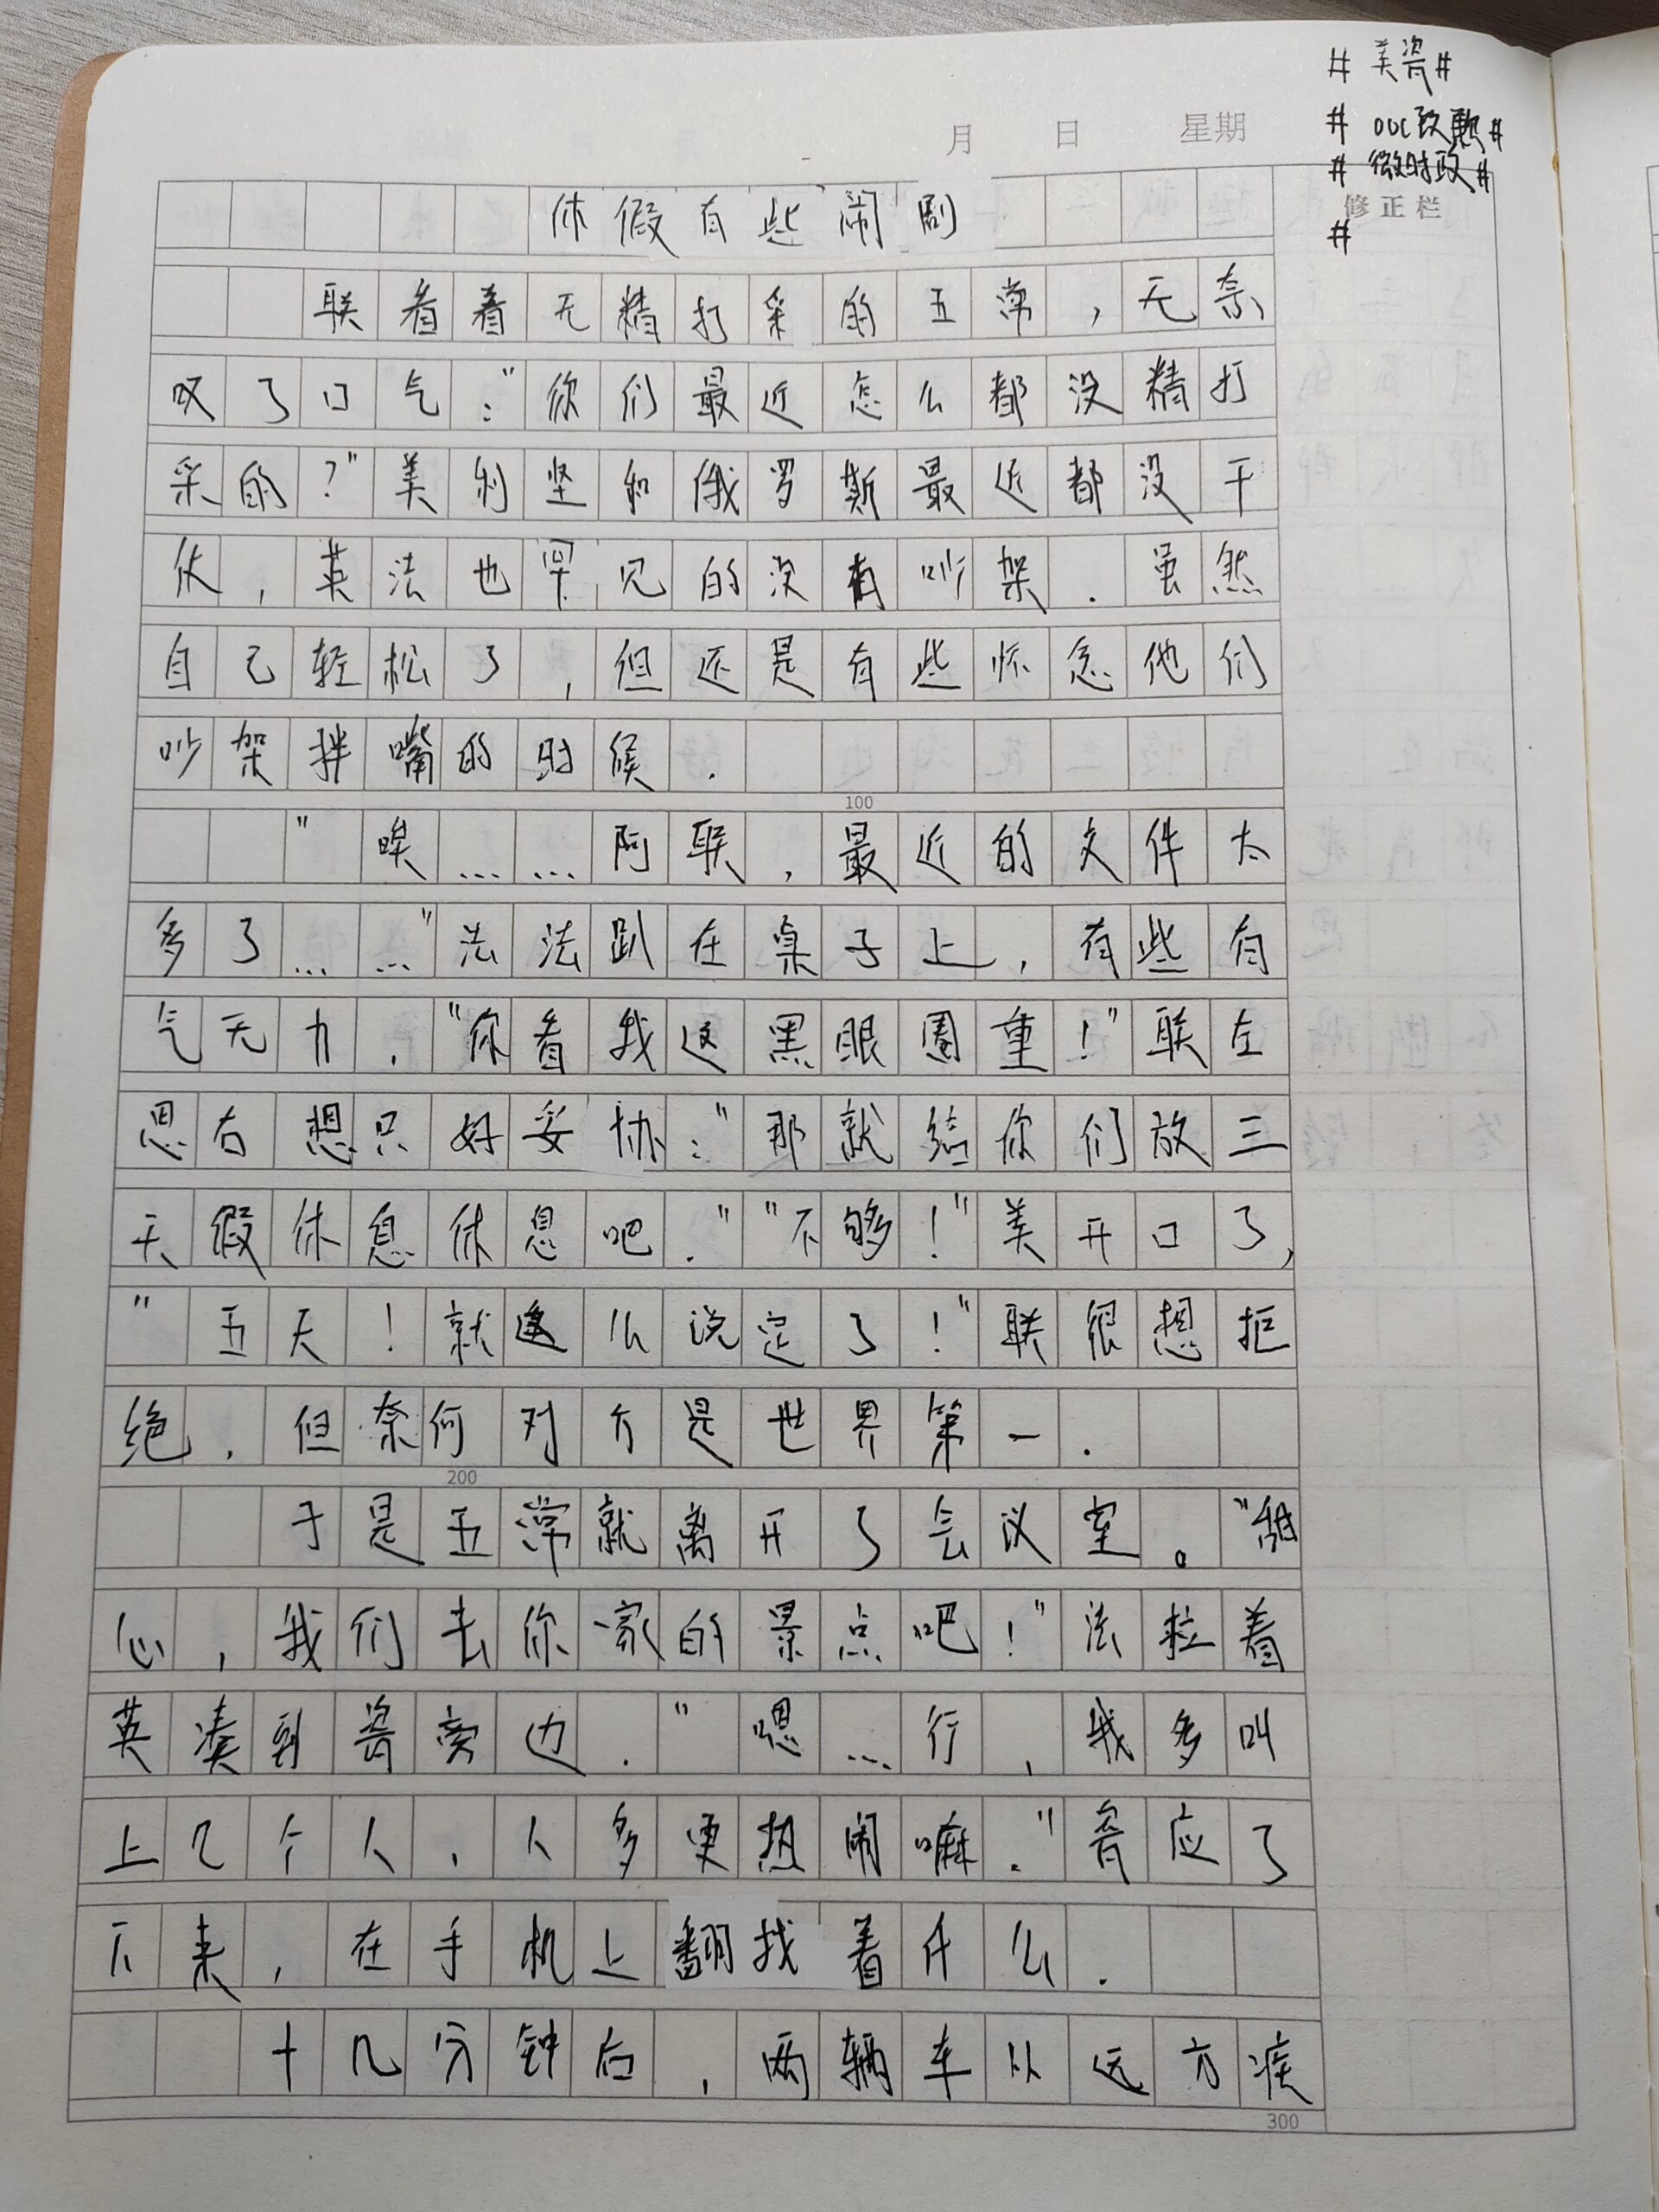 #美瓷#
#OOC致歉#
#微时政#
#
月 日 星期
修正栏
休假有些闹剧
联看着无精打采的五常,无奈
叹了口气:"你们最近怎么都没精打
采的?"美利坚和俄罗斯最近都没干
仗,英法也罕见的没有吵架.虽然
自己轻松了,但还是有些怀念他们
吵架拌嘴的时候.
100
"唉……阿联,最近的文件太
多了……"法法趴在桌子上,有些有
气无力,"你看我这黑眼圈重!"联左
思右想只好妥协:"那就给你们放三
天假休息休息吧.""不够!"美开口了,
"五天!就这么说定了!"联很想拒
绝,但奈何对方是世界第一.
200
于是五常就离开了会议室。"甜
心,我们去你家的景点吧!"法拉着
英凑到瓷旁边."嗯…行,我多叫
上几个人,人多更热闹嘛."瓷应了
下来,在手机上翻找着什么.
十几分钟后,两辆车从远方疾
300